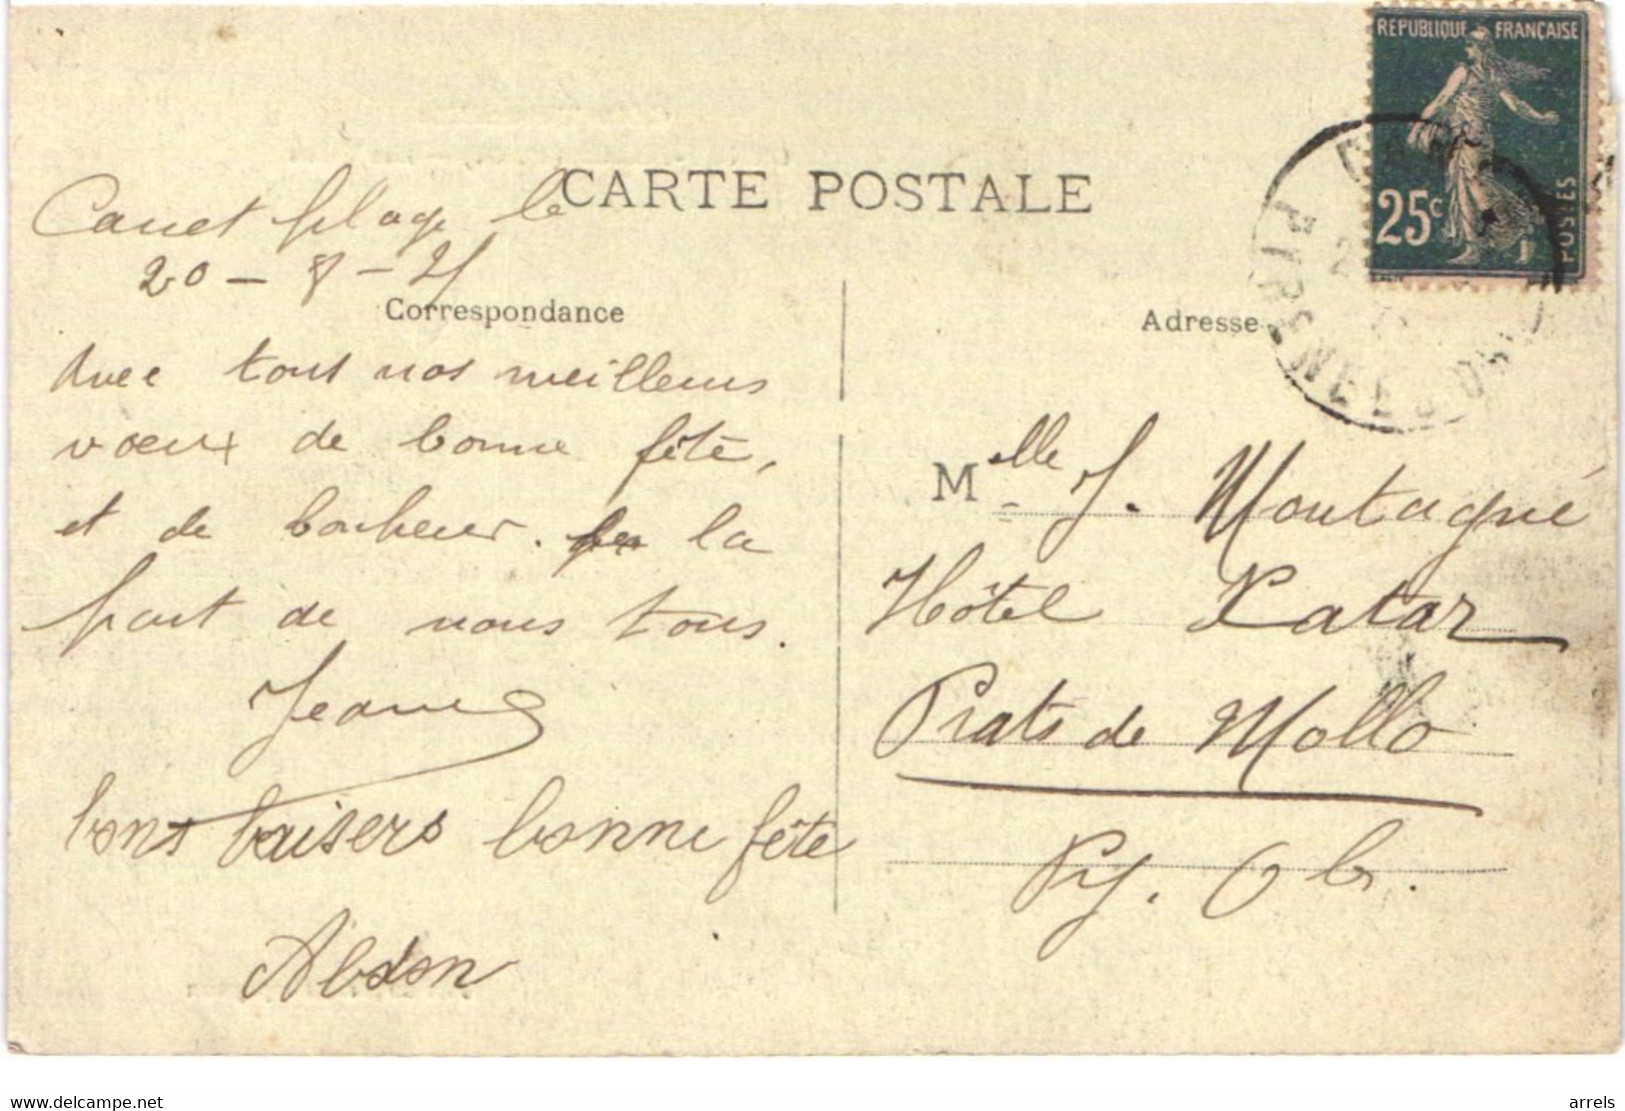 REPUBLIQUE FRANCAISE
25c
POSTES
CARTE POSTALE
Canet plage le
20 - 8 - 21
Correspondance
Avec tous nos meilleurs
vœux de bonne fête,
et de bonheur. la
part de nous tous.
Jeanne
bons baisers bonne fête
Abdon
Adresse
PYRENEES OR
Melle J. Montagné
Hôtel Xatar
Prats de Mollo
Py. Or.
www.delcampe.net
arrels